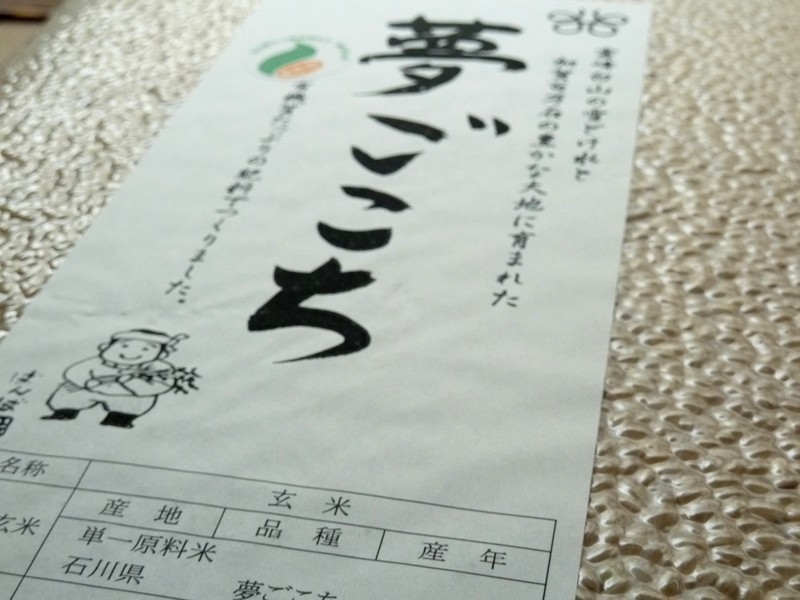 霊峰白山の雪どけ水と
加賀百万石の豊かな大地に育まれた
夢ごこち
の肥料でつくりました。
名称 玄米
玄米 産地 品種 産年
単一原料米
石川県 夢ごこち